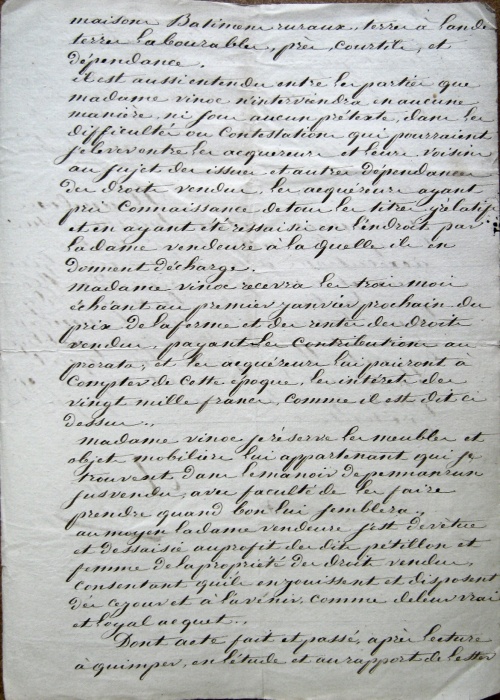 maisons Batimens ruraux, terres à lande
terres labourables, prés, courtils, et
dépendances.
il est aussi entendu entre les parties que
madame vinoc n'interviendra en aucune
manière, ni sous aucun prétexte, dans les
difficultés ou Contestations qui pourraient
s'elever entre les acquereurs et leurs voisins
au sujet des issues et autres dépendances
des droits vendus, les acquéreurs ayant
pris Connaissance de tous les titres y rélatifs
et en ayant été ressaisis en l'endroit par
la dame vendeure à la quelle ils en
donnent décharge.
madame vinoc recevra les trois mois
échéant au premier janvier prochain du
prix de la ferme et des rentes des droits
vendus, payant les Contributions au
prorata, et les acquéreurs lui paieront à
Compter de cette époque, les intérêts des
vingt mille francs, comme il est dit ci
dessus.,
madame vinoc se réserve les meubles et
objets mobiliers lui appartenant qui se
trouvent dans le manoir de penmanrun
susvendu, avec faculté de les faire
prendre quand bon lui semblera.,
au moyen la dame vendeure s'est devetue
et dessaisie au profit des dits pétillon et
femme de la propriété des droits vendus,
consentant qu'ils en jouissent et disposent
dès ce jour et à l'avenir, comme de leur vrai
et loyal acquet.,
Dont acte fait et passé, après lecture
à quimper, en l'étude et au rapport de